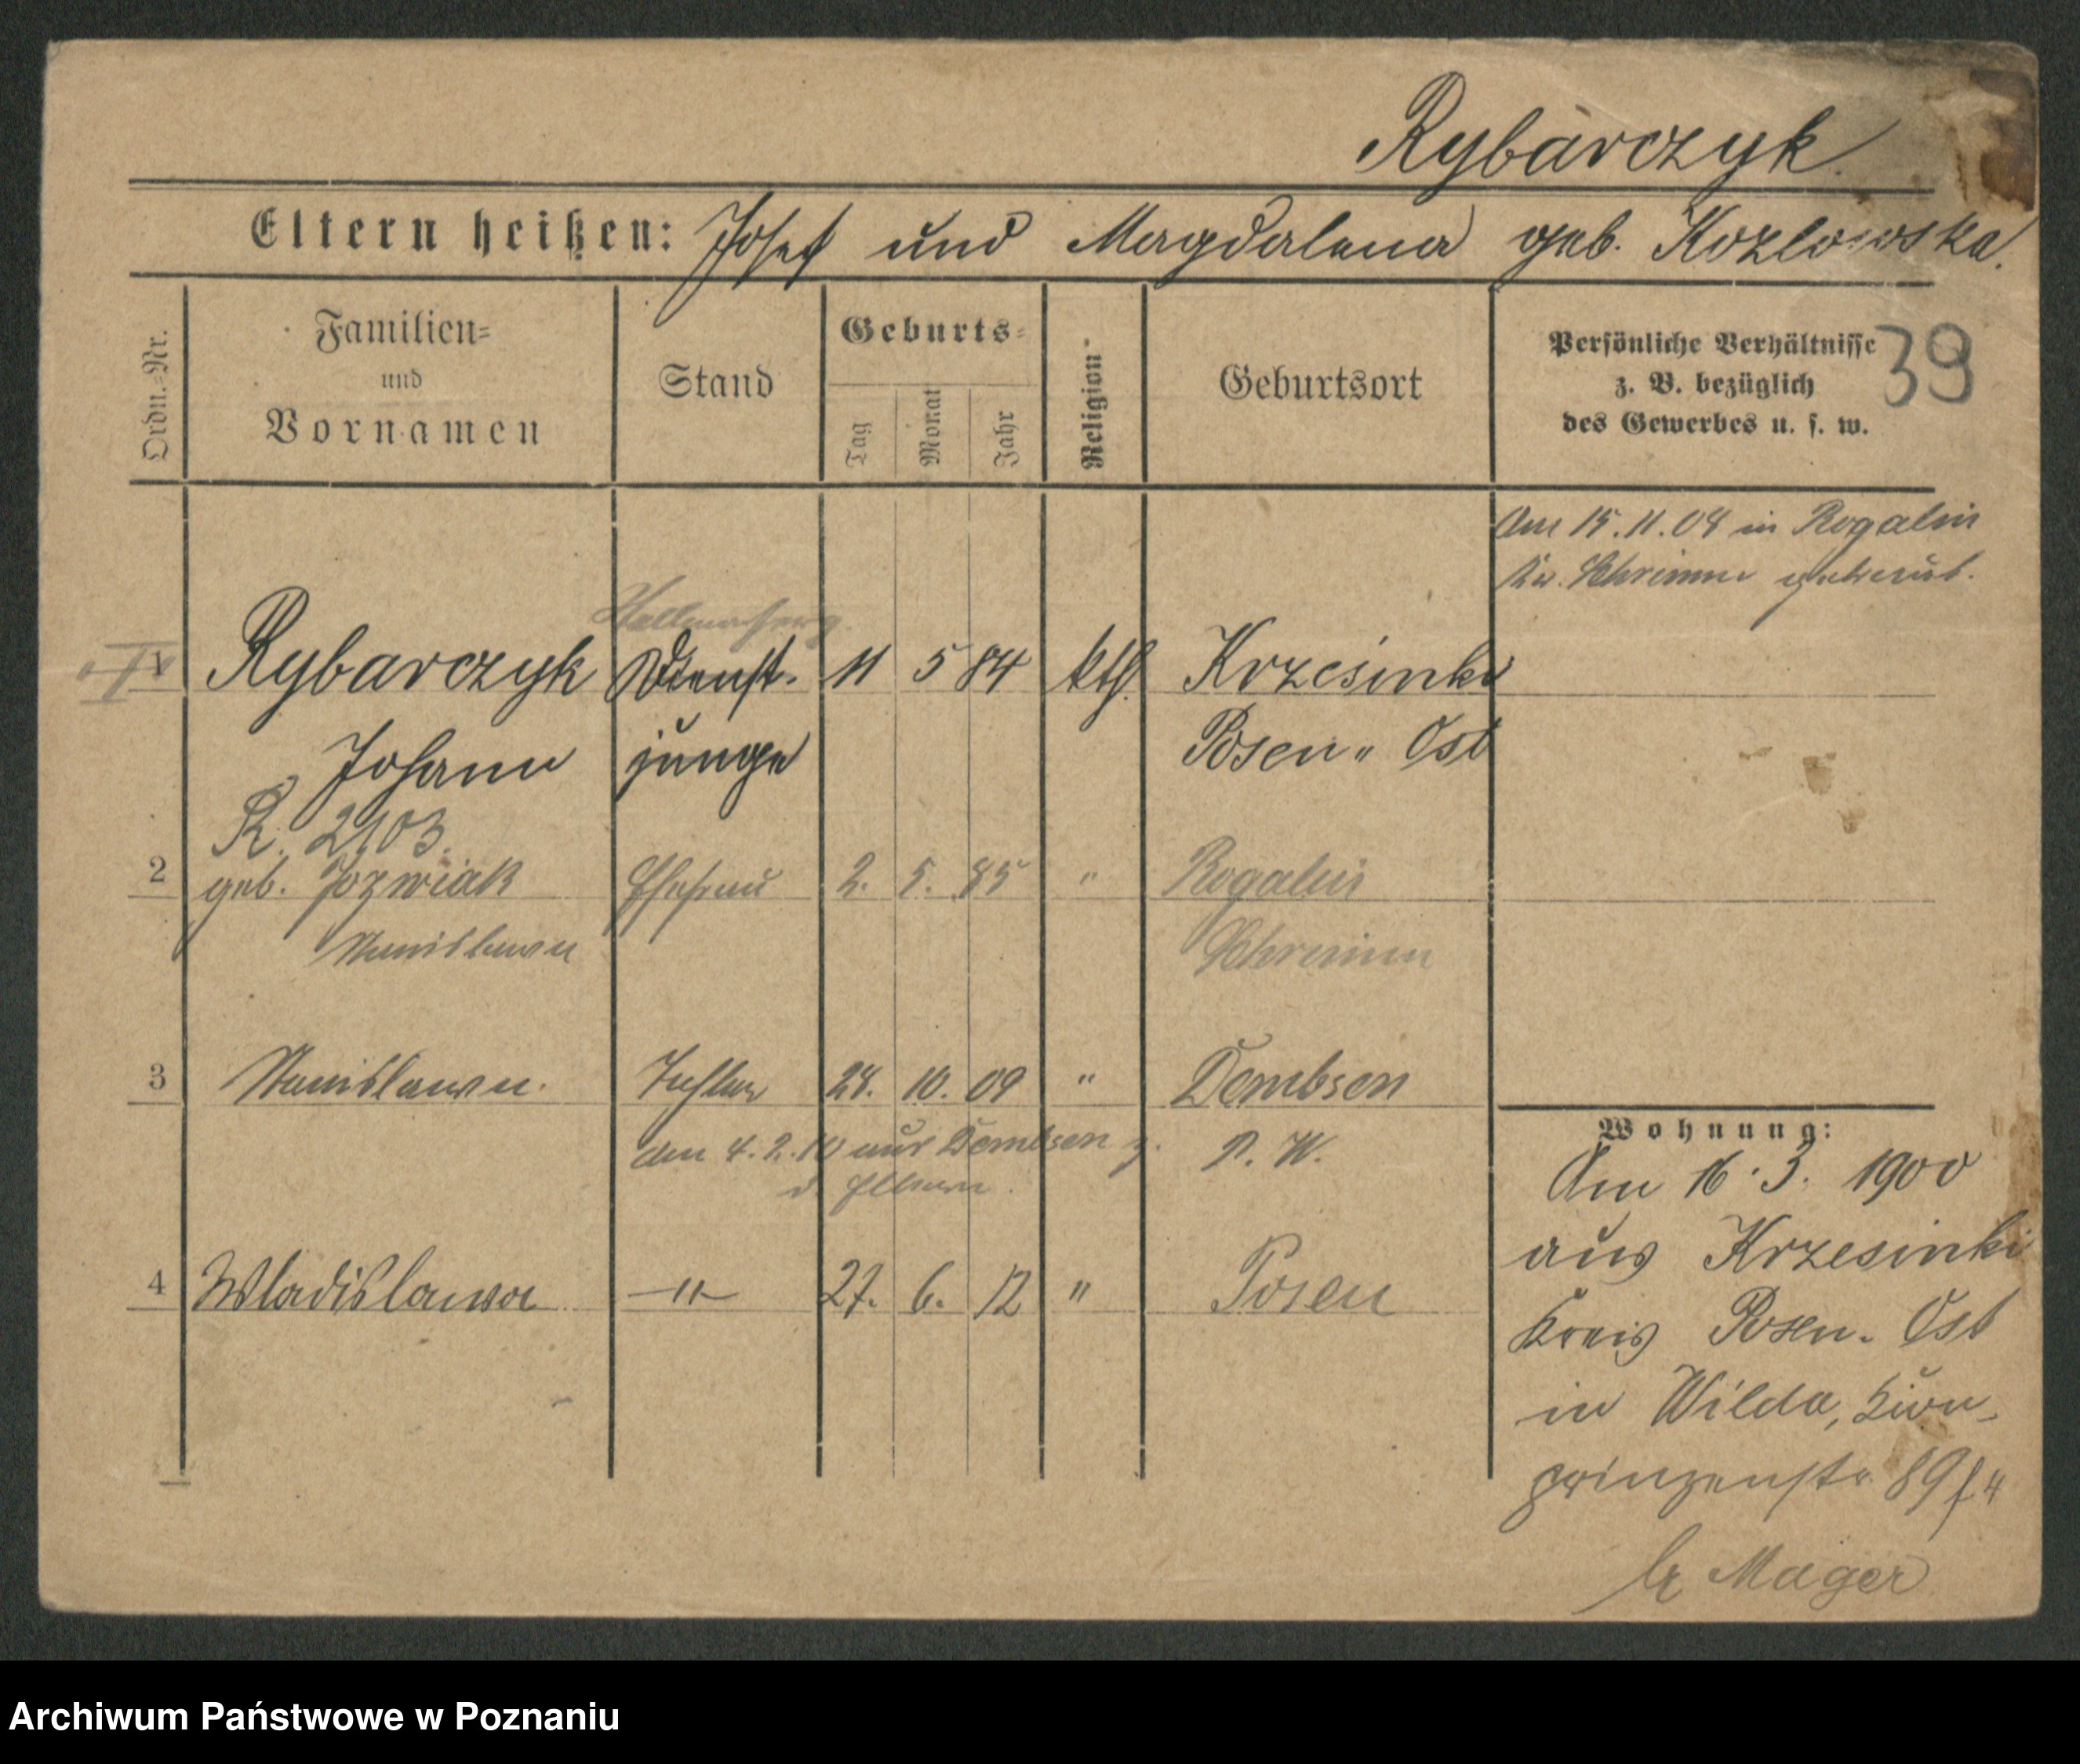 Rybarczyk.
Eltern heißen: Josef und Magdalena geb. Kozlowska.
Ordn.-Nr.
Familien=
und
Vornamen
Stand
Geburts=
Tag
Monat
Jahr
Religion
Geburtsort
Persönliche Verhältnisse
z. B. bezüglich
des Gewerbes u. s. w.
39
Am 15.11.04 in Rogalin
Kr. Schrimm geheirat.
Rybarczyk Dienst- 11 5 84 kth. Krzesinki
Johann junge Posen-Ost
R. 2103.
2 geb. Jozwiak Ehefrau 2. 5. 85 " Rogalin
Stanislawa Schrimm
3 Stanislawa. Tochter 28. 10. 09 " Dembsen
am 4.2.10 aus Dembsen z. P. W.
d. Eltern.
4 Wladislawa —"— 27. 6. 12 " Posen
Wohnung:
Am 16.3.1900
aus Krzesinki
Kreis Posen-Ost
in Wilda, Kron-
prinzenstr. 89
b. Mager
Archiwum Państwowe w Poznaniu